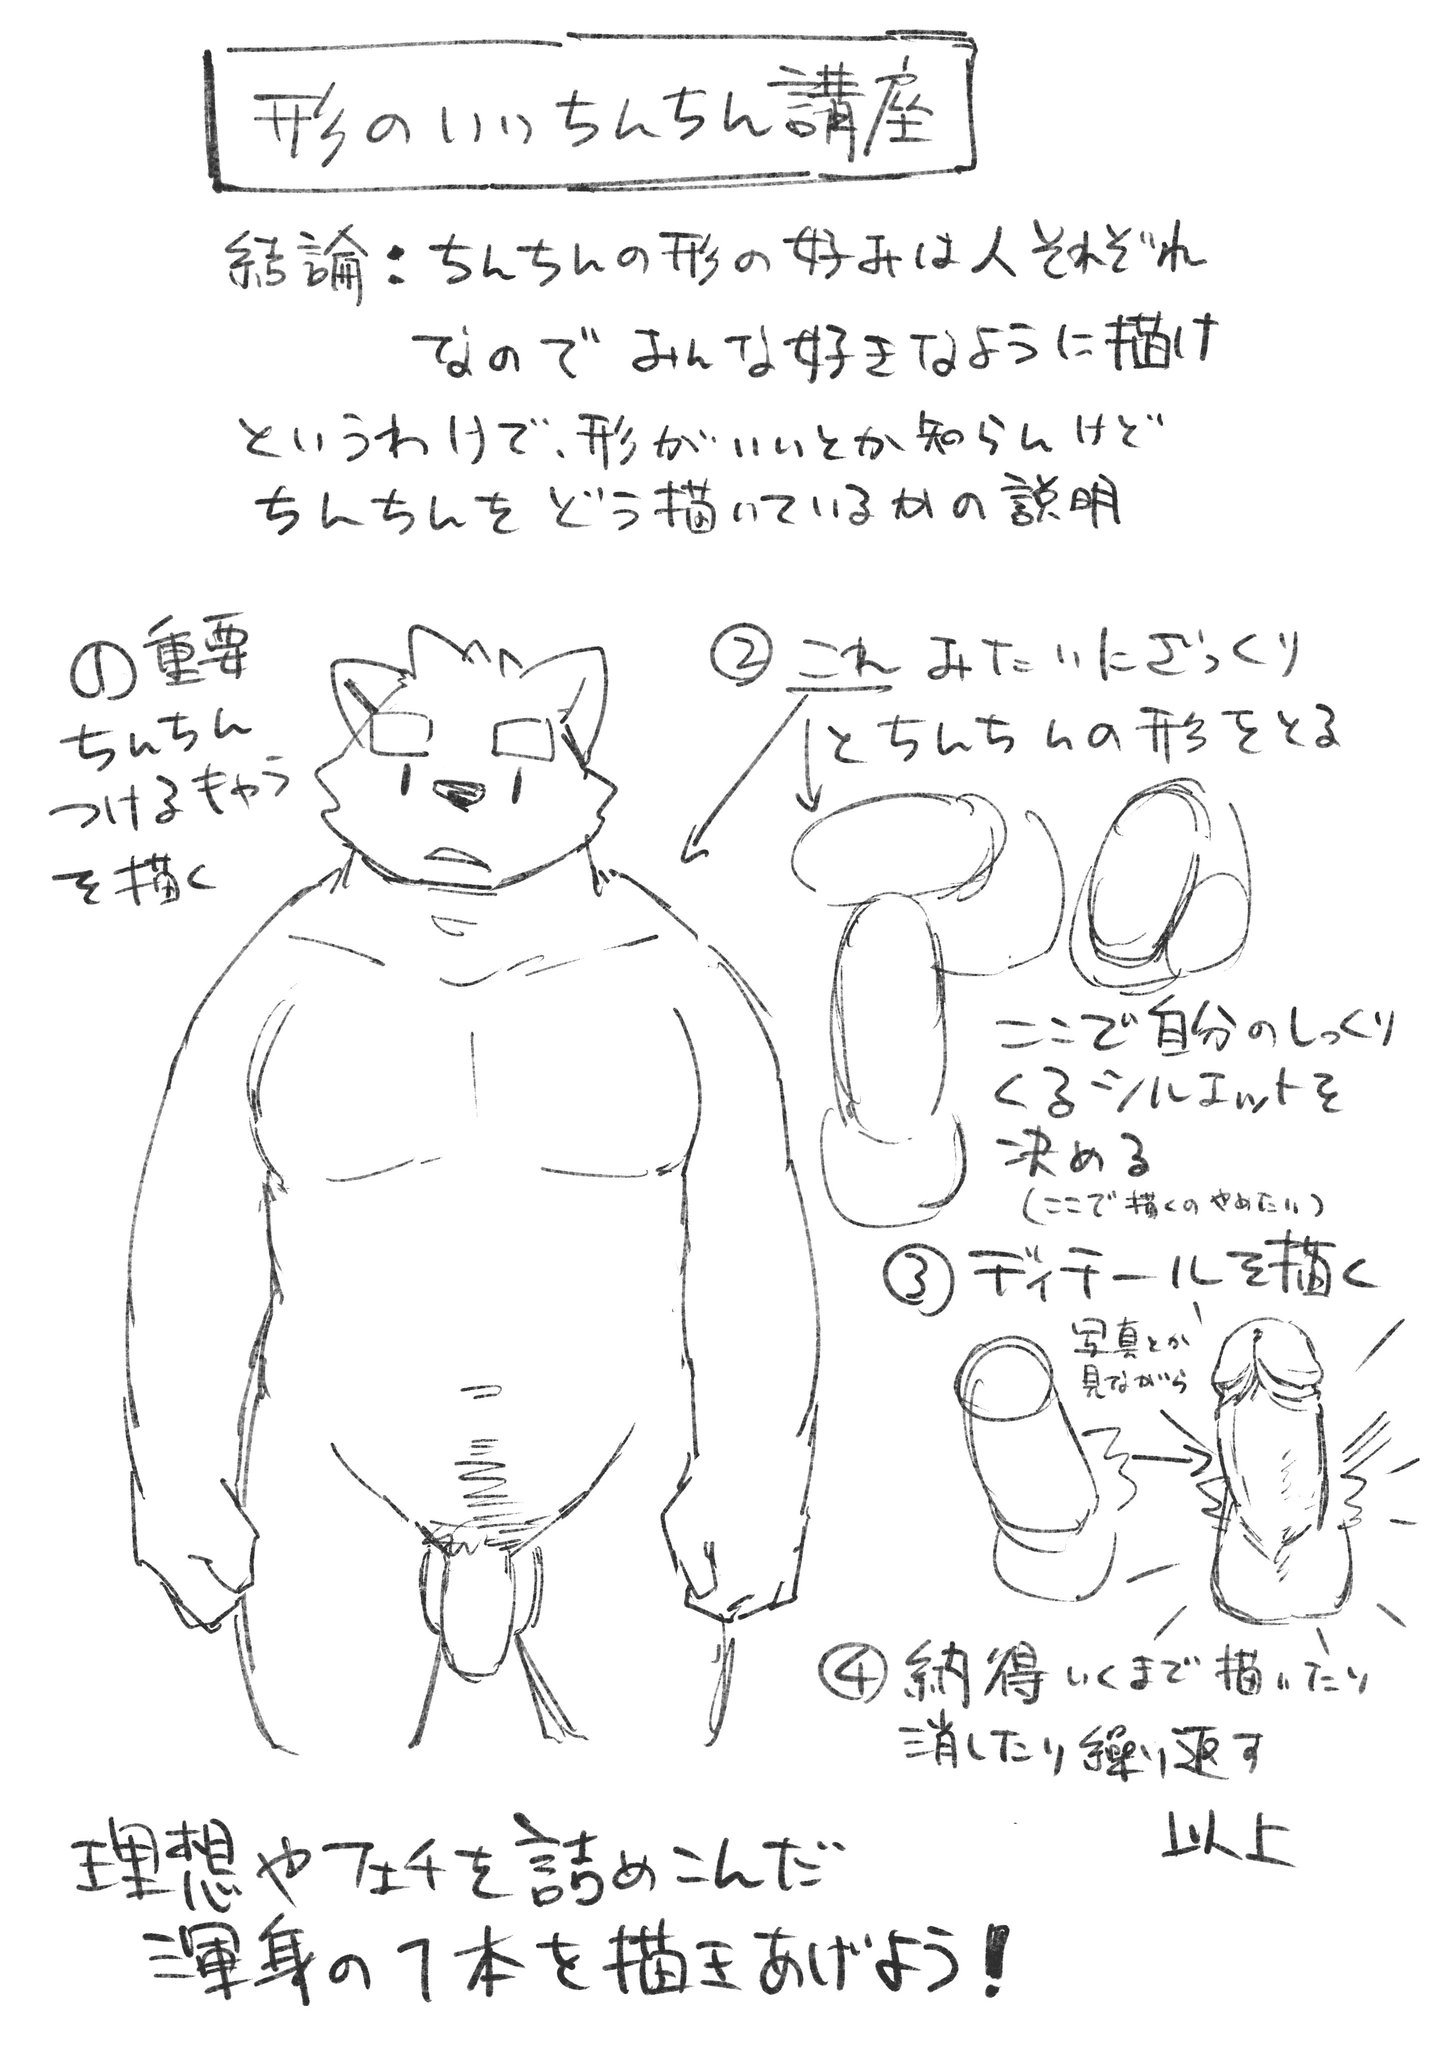 形のいいちんちん講座
結論：ちんちんの形の好みは人それぞれ
なのでみんな好きなように描け
というわけで、形がいいとか知らんけど
ちんちんをどう描いているかの説明
①重要
ちんちん
つけるキャラ
を描く
②これみたいにざっくり
とちんちんの形をとる
ここで自分のしっくり
くるシルエットを
決める
(ここで描くのやめたい)
③ディテールを描く
写真とか
見ながら
④納得いくまで描いたり
消したり繰り返す
以上
理想やフェチを詰めこんだ
渾身の1本を描きあげよう!